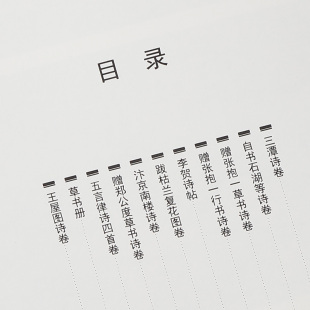 目录
三潭诗卷
自书石湖等诗卷
赠张抱一草书诗卷
赠张抱一行书诗卷
李贺诗帖
跋枯兰复花图卷
汴京南楼诗卷
赠郑公度草书诗卷
五言律诗四首卷
草书册
王屋图诗卷